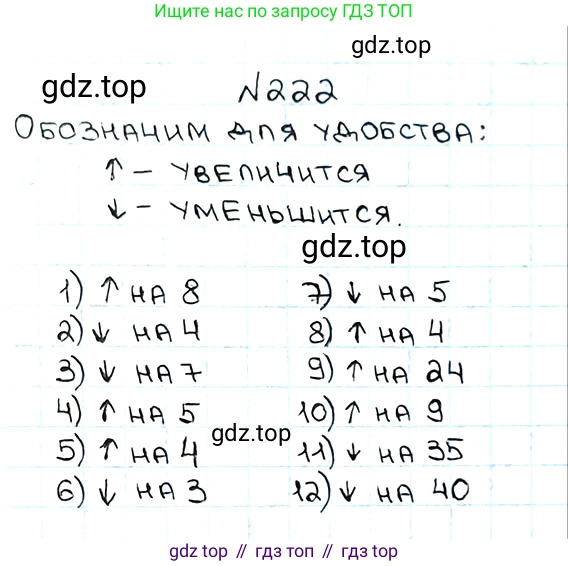 Ищите нас по запросу ГДЗ ТОП
gdz.top
gdz.top
№222
Обозначим для удобства:
↑ – увеличится
↓ – уменьшится.
gdz.top
1) ↑ на 8
2) ↓ на 4
3) ↓ на 7
4) ↑ на 5
5) ↑ на 4
6) ↓ на 3
7) ↓ на 5
8) ↑ на 4
9) ↑ на 24
10) ↑ на 9
11) ↓ на 35
12) ↓ на 40
gdz.top
gdz top // гдз топ // gdz.top